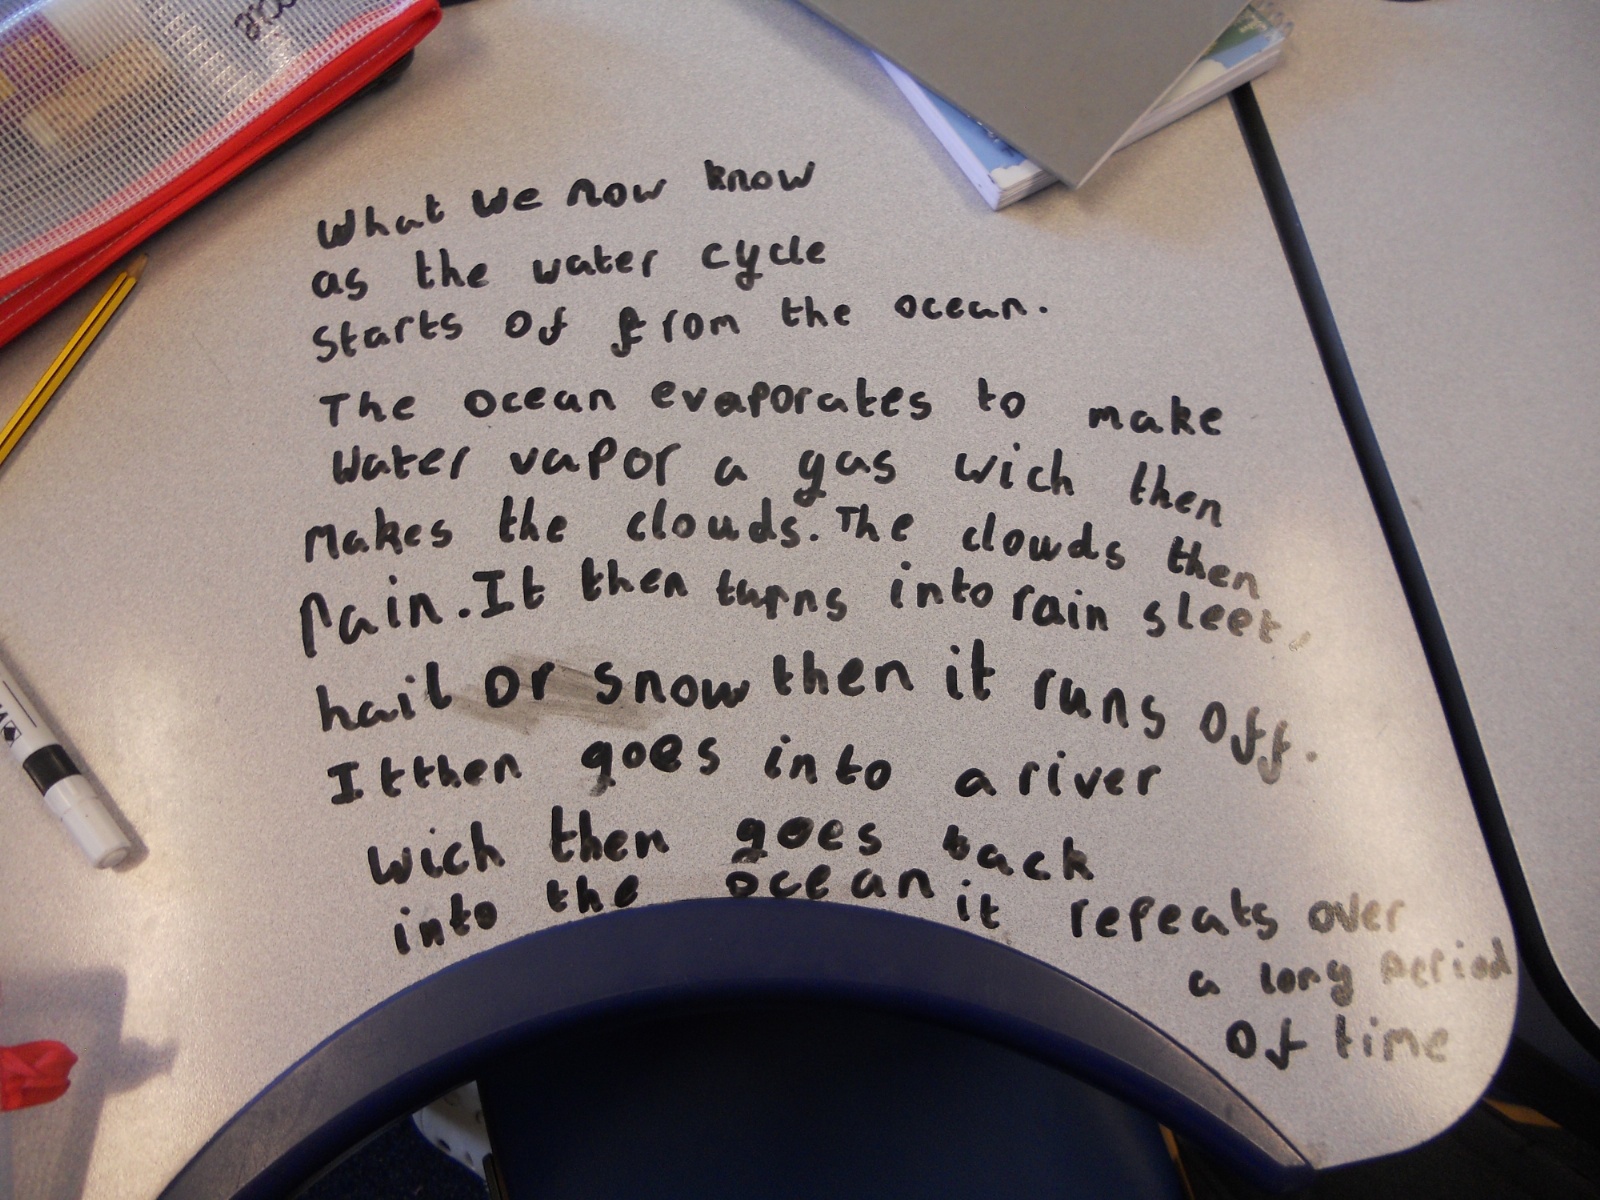 What we now know
as the water cycle
starts of from the ocean.
The ocean evaporates to make
water vapor a gas wich then
makes the clouds. The clouds then
rain. It then turns into rain sleet,
hail or snow then it runs off.
It then goes into a river
wich then goes back
into the ocean it repeats over
a long period
of time